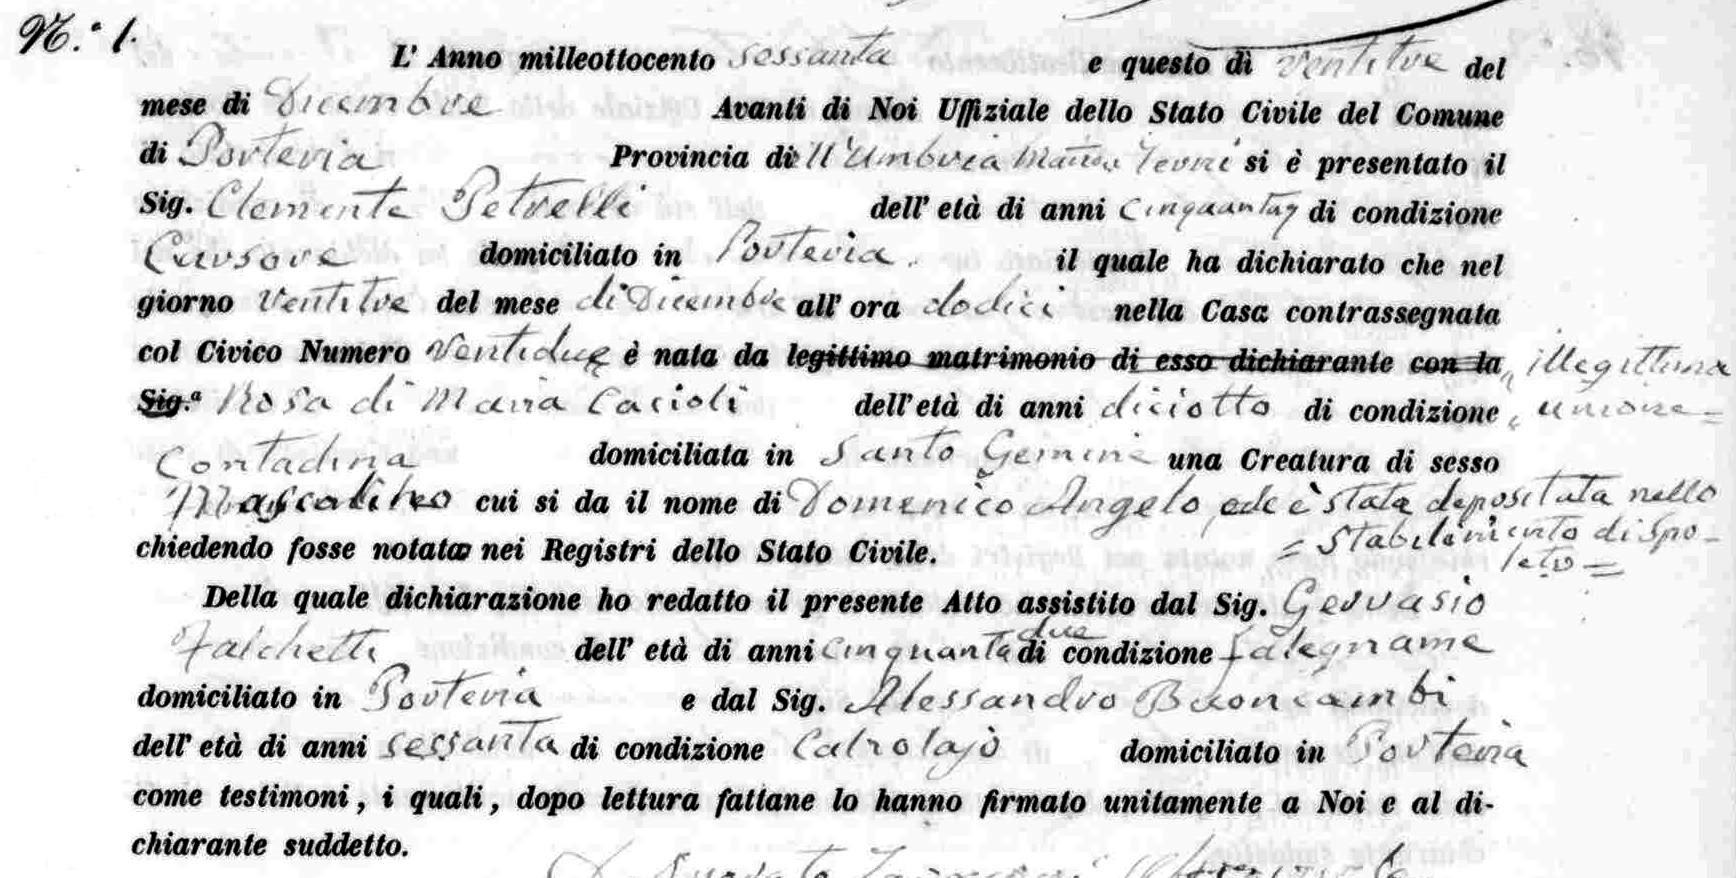 N.° 1.
L' Anno milleottocento sessanta e questo dì ventitre del
mese di Dicembre Avanti di Noi Uffiziale dello Stato Civile del Comune
di Porteria Provincia dell'Umbria si è presentato il
Sig. Clemente Petrelli dell' età di anni Cinquanta di condizione
Cursore domiciliato in Porteria. il quale ha dichiarato che nel
giorno Ventitre del mese di Dicembre all' ora dodici nella Casa contrassegnata
col Civico Numero Ventidue è nata da legittimo matrimonio di esso dichiarante con la illegittima
Sig.ª Rosa di Maria Cacioli dell' età di anni diciotto di condizione unione=
Contadina domiciliata in Santo Gemine una Creatura di sesso
Mascolino cui si da il nome di Domenico Angelo, ed è stata depositata nello
chiedendo fosse notata nei Registri dello Stato Civile. = Stabilimento di Spo-
leto=
Della quale dichiarazione ho redatto il presente Atto assistito dal Sig. Gervasio
Falchetti dell' età di anni cinquantadue di condizione falegname
domiciliato in Porteria e dal Sig. Alessandro Buoncambi
dell' età di anni sessanta di condizione Calzolajo domiciliato in Porteria
come testimoni, i quali, dopo lettura fattane lo hanno firmato unitamente a Noi e al di-
chiarante suddetto.